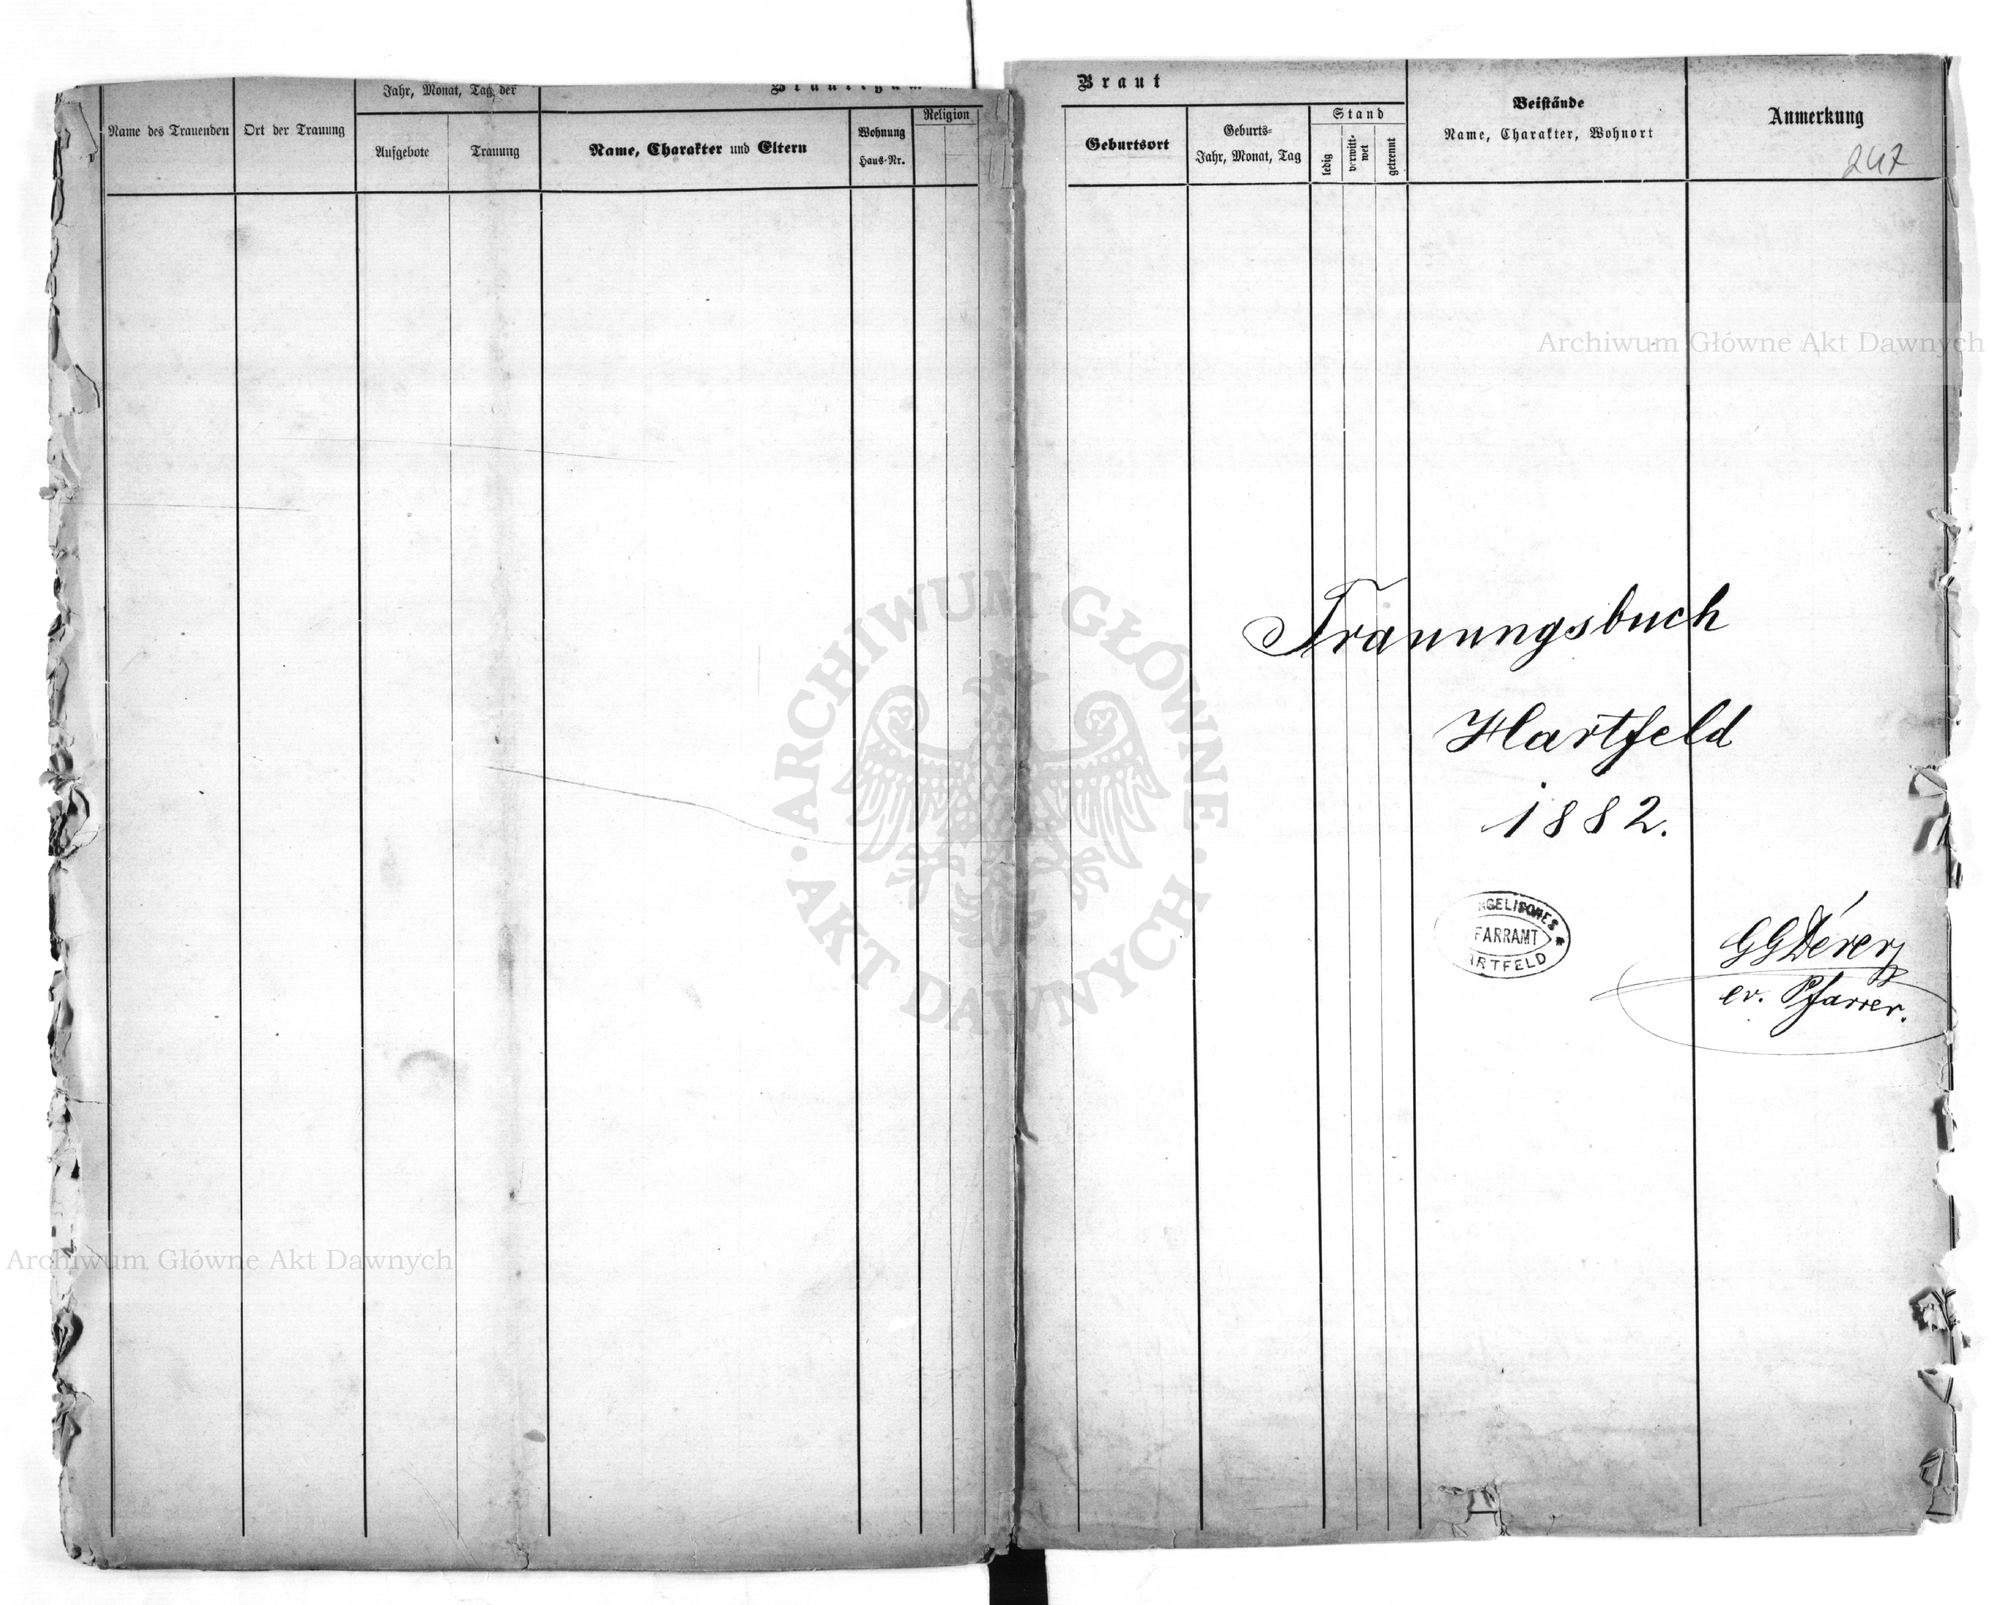 Jahr, Monat, Tag der
Name des Trauenden
Ort der Trauung
Aufgebote
Trauung
Name, Charakter und Eltern
Wohnung
Haus-Nr.
Religion
Braut
Geburtsort
Geburts-
Jahr, Monat, Tag
Stand
ledig
verwitt-
wet
getrennt
Beistände
Name, Charakter, Wohnort
Anmerkung
247
Archiwum Główne Akt Dawnych
Trauungsbuch
Hartfeld
1882.
NGELISCHES
FARRAMT
RTFELD
ev. Pfarrer.
ARCHIWUM GŁÓWNE
AKT DAWNYCH
Archiwum Główne Akt Dawnych